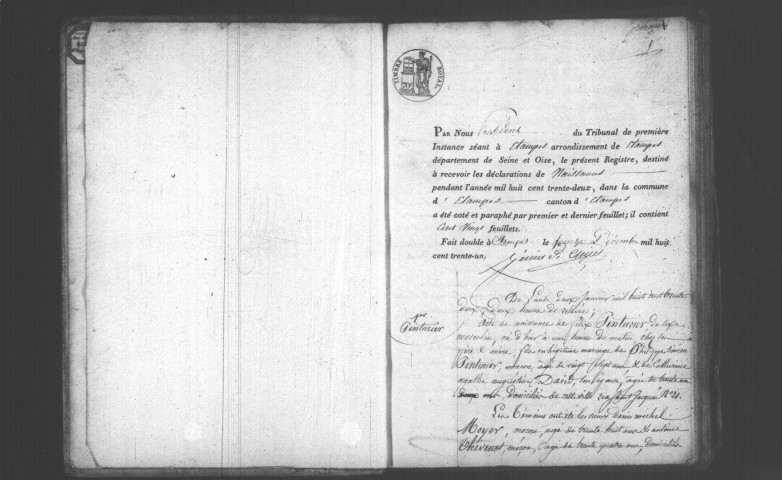 1
TIMBRE ROYAL
PAR NOUS Président du Tribunal de première
Instance séant à Etampes arrondissement de Etampes
département de Seine et Oise, le présent Registre, destiné
à recevoir les déclarations de Naissances
pendant l'année mil huit cent trente-deux, dans la commune
d'Etampes canton d'Etampes
a été coté et paraphé par premier et dernier feuillet; il contient
Cent Vingt feuillets.
Fait double à Etampes le Décembre mil huit
cent trente-un.
Du Lundi deux Janvier mil huit cent trente
deux, deux heures de relevée,
1er
Pinturier
Acte de naissance de Pinturier du sexe
masculin, né d'hier à une heure du matin chez ses
père & mère, fils en légitime mariage de Philippe Simon
Pinturier, âgé de vingt sept ans & de Catherine
agathe augustine David, son épouse, agée de trente un
ans, domiciliés de cette ville rue St Jacques No
Les Témoins ont été les sieurs Denis michel
Moyer, maçon, agé de trente huit ans & antoine
Thévenot, maçon, agé de trente quatre ans, domiciliés